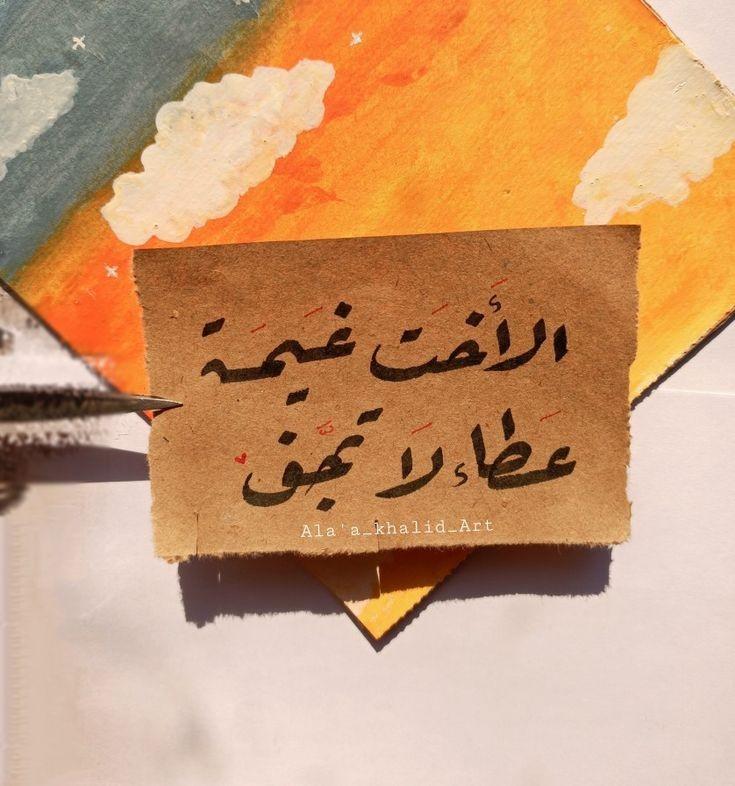 الأُخَت غَيَمَة
عَطاء لَا تجّف
Ala'a_khalid_Art